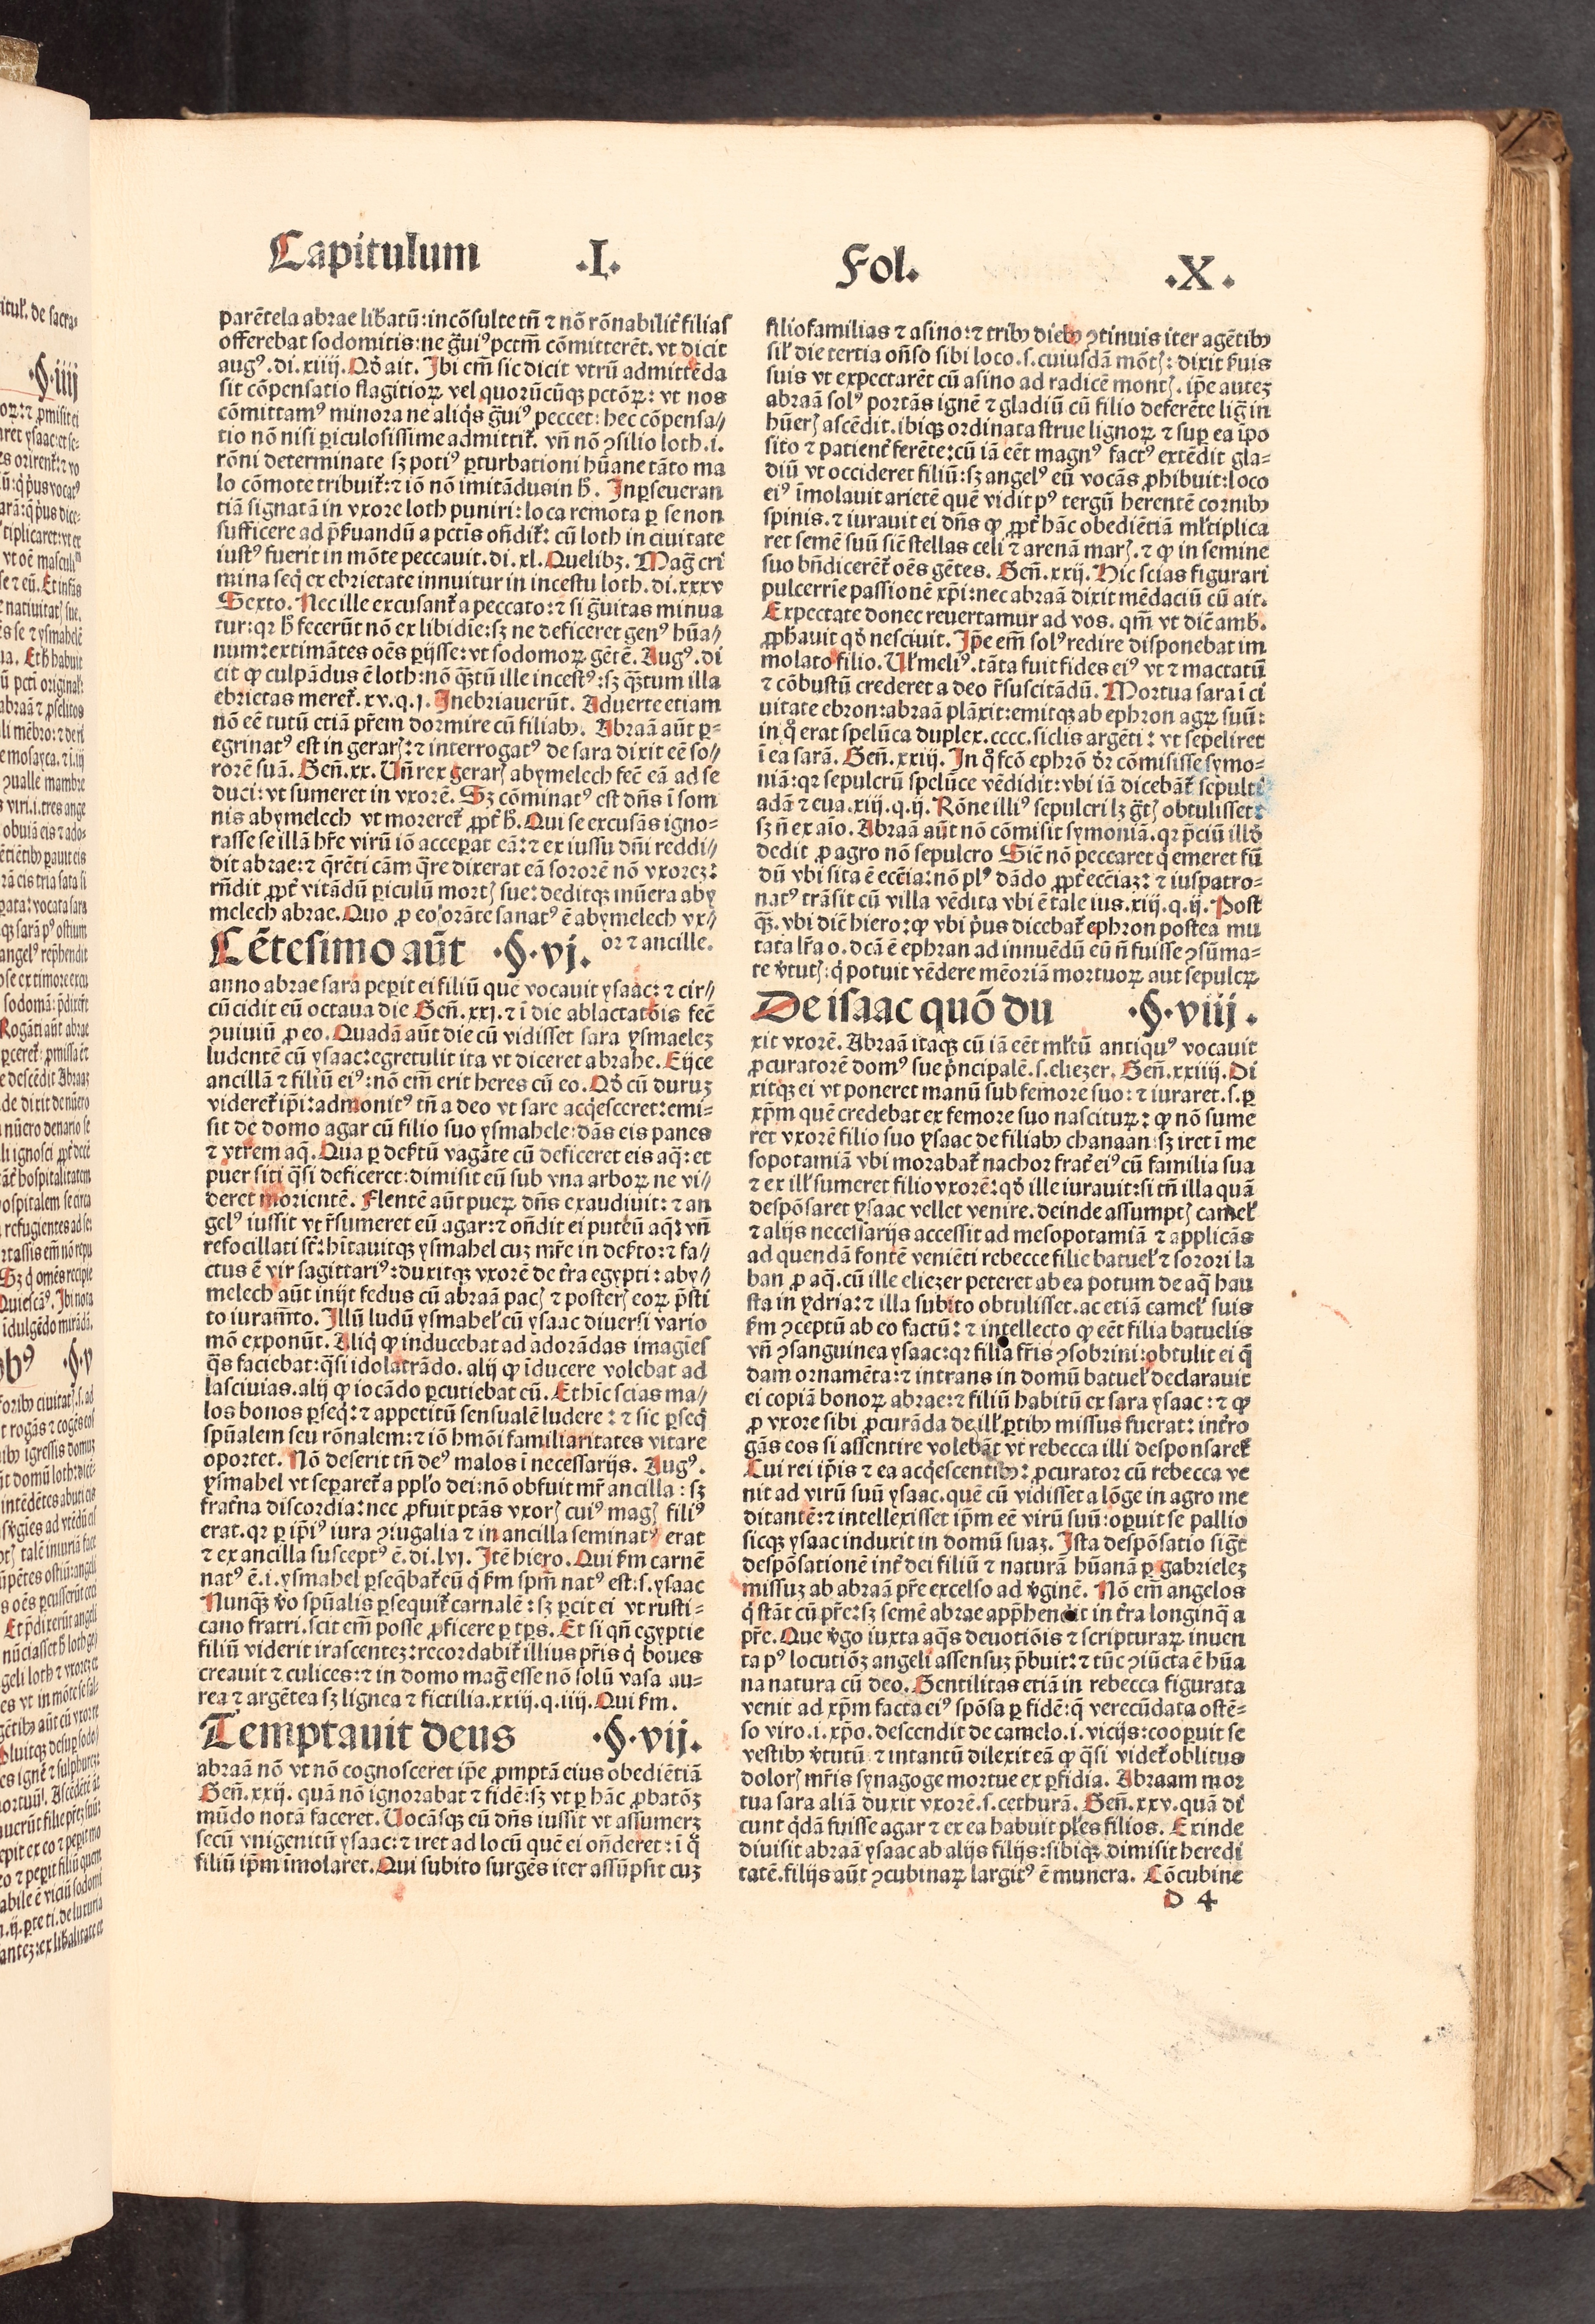 Capitulum .I. Fol. .X.
parẽtela abrae lib̃atũ: incõsulte tñ ⁊ nõ rõnabilit̃ filias
offerebat sodomitis: ne g̃ui⁹ pctm̃ cõmitterẽt. vt dicit
aug⁹. di. xiiij. Qđ ait. Ibi em̃ sic dicit vtrũ admittẽda
sit cõpensatio flagitioꝝ vel quorũcũqꝫ pctõꝝ: vt nos
cõmittam⁹ minora ne aliq̃s g̃ui⁹ peccet: hec cõpensa//
tio nõ nisi ꝑiculosissime admittit̃. vñ nõ ꝯsilio loth .i.
rõni determinate sꝫ poti⁹ ꝑturbationi hũane tãto ma
lo cõmote tribuit̃: ⁊ iõ nõ imitãdus in h̃. In ꝑseueran
tiã signatã in vxore loth puniri: loca remota ꝑ se non
sufficere ad p̃ẞuandũ a pctis oñdit̃: cũ loth in ciuitate
iust⁹ fuerit in mõte peccauit. di. xl. Quelibꝫ. Mag̃ cri
mina seq̃ ex ebrietate innuitur in incestu loth. di. xxxv
Sexto. Nec ille excusant̃ a peccato: ⁊ si g̃uitas minua
tur: qꝛ h̃ fecerũt nõ ex libidĩe: sꝫ ne deficeret gen⁹ hũa//
num: extimãtes oẽs ꝑijsse: vt sodomoꝝ gẽtẽ. Aug⁹. di
cit ꝙ culpãdus ẽ loth: nõ q̃ꝫtũ ille incest⁹: sꝫ q̃ꝫtum illa
ebrietas meret̃. xv. q. j. Inebriauerũt. Aduerte etiam
nõ eẽ tutũ etiã pr̃em dormire cũ filiabꝫ. Abraã aũt ꝑ=
egrinat⁹ est in gerarꝭ: ⁊ interrogat⁹ de sara dixit eẽ so/
rorẽ suã. Geñ. xx. Uñ rex gerarꝭ abymelech fec̃ eã ad se
duci: vt sumeret in vxorẽ. Sꝫ cõminat⁹ est dñs ĩ som
nis abymelech vt moreret̃ ꝓpt̃ h̃. Qui se excusãs igno=
rasse se illã hr̃e virũ iõ acceꝑat eã: ⁊ ex iussu dñi reddi//
dit abrae: ⁊ q̃rẽti cãm q̃re dixerat eã sororẽ nõ vxoreꝫ:
rñdit ꝓpt̃ vitãdũ ꝑiculũ mortꝭ sue: deditqꝫ mũera aby
melech abrae. Quo ꝓ eo orãte sanat⁹ ẽ abymelech vx//
or ⁊ ancille.
Cẽtesimo aũt .§. vj.
anno abrae sara peꝑit ei filiũ quẽ vocauit ysaac: ⁊ cir//
cũcidit eũ octaua die Geñ. xxj. ⁊ ĩ die ablactatõis fec̃
ꝯuiuiũ ꝓ eo. Quadã aũt die cũ vidisset sara ysmaeleꝫ
ludentẽ cũ ysaac: egre tulit ita vt diceret abrahe. Eijce
ancillã ⁊ filiũ ei⁹: nõ em̃ erit heres cũ eo. Qđ cũ duruꝫ
videret̃ ip̃i: admonit⁹ tñ a deo vt sare acq̃esceret: emi=
sit de domo agar cũ filio suo ysmahele: dãs eis panes
⁊ vtrem aq̃. Qua ꝑ deẞtũ vagãte cũ deficeret eis aq̃: et
puer siti q̃si deficeret: dimisit eũ sub vna arboꝝ ne vi/
deret morientẽ. Flentẽ aũt pueꝝ dñs exaudiuit: ⁊ an
gel⁹ iussit vt r̃sumeret eũ agar: ⁊ oñdit ei puteũ aq̃: vñ
refocillati st̃: hĩtauitqꝫ ysmahel cuꝫ mr̃e in deẞto: ⁊ fa//
ctus ẽ vir sagittari⁹: duxitqꝫ vxorẽ de t̃ra egypti: aby//
melech aũt inijt fedus cũ abraã pacꝭ ⁊ posterꝭ eoꝝ p̃sti
to iuram̃to. Illũ ludũ ysmahel̃ cũ ysaac diuersi vario
mõ exponũt. Aliq̃ ꝙ inducebat ad adorãdas imagĩes
q̃s faciebat: q̃si idolatrãdo. alij ꝙ ĩducere volebat ad
lasciuias. alij ꝙ iocãdo ꝑcutiebat eũ. Et hĩc scias ma//
los bonos ꝑseq̃: ⁊ appetitũ sensualẽ ludere: ⁊ sic ꝑseq̃
spũalem seu rõnalem: ⁊ iõ hmõi familiaritates vitare
oportet. Nõ deserit tñ de⁹ malos ĩ necessarijs. Aug⁹.
ysmahel vt seꝑaret̃ a pplo dei: nõ obfuit mr̃ ancilla: sꝫ
frat̃na discordia: nec ꝓfuit ptãs vxorꝭ cui⁹ magꝭ fili⁹
erat. qꝛ ꝑ ip̃i⁹ iura ꝯiugalia ⁊ in ancilla seminat⁹ erat
⁊ ex ancilla suscept⁹ ẽ. di. lvj. Itẽ hiero. Qui ẞm carnẽ
nat⁹ ẽ .i. ysmahel ꝑseq̃bat̃ eũ q̃ ẞm spm̃ nat⁹ est: .s. ysaac
Nunq̃ꝫ ṽo spũalis ꝑsequit̃ carnalẽ: sꝫ ꝑcit ei vt rusti=
cano fratri. scit em̃ posse ꝓficere ꝑ tp̃s. Et si qñ egyptie
filiũ viderit irascenteꝫ: recordabit̃ illius pr̃is q̃ boues
creauit ⁊ culices: ⁊ in domo mag̃ esse nõ solũ vasa au=
rea ⁊ argẽtea sꝫ lignea ⁊ fictilia. xxiij. q. iiij. Qui ẞm.
Temptauit deus .§. vij.
abraã nõ vt nõ cognosceret ip̃e ꝓmptã eius obediẽtiã
Geñ. xxij. quã nõ ignorabat ⁊ fidẽ: sꝫ vt ꝑ hãc ꝓbatõꝫ
mũdo notã faceret. Uocãsqꝫ eũ dñs iussit vt assumerꝫ
secũ vnigenitũ ysaac: ⁊ iret ad locũ quẽ ei oñderet: ĩ q̃
filiũ ip̃m ĩmolaret. Qui subito surgẽs iter assũpsit cuꝫ
filiofamilias ⁊ asino: ⁊ tribꝫ diebꝫ ꝯtinuis iter agẽtibꝫ
sil̃ die tertia oñso sibi loco .s. cuiusdã mõtꝭ: dixit ẞuis
suis vt expectarẽt cũ asino ad radicẽ montꝭ. ip̃e auteꝫ
abraã sol⁹ portãs ignẽ ⁊ gladiũ cũ filio deferẽte lig̃ in
hũerꝭ ascẽdit. ibiqꝫ ordinata strue lignoꝝ ⁊ suꝑ ea ĩpo
sito ⁊ patient̃ ferẽte: cũ iã eẽt magn⁹ fact⁹ extẽdit gla=
diũ vt occideret filiũ: sꝫ angel⁹ eũ vocãs ꝓhibuit: loco
ei⁹ ĩmolauit arietẽ quẽ vidit p⁹ tergũ herentẽ cornibꝫ
spinis. ⁊ iurauit ei dñs ꝙ ꝓpt̃ hãc obediẽtiã ml̃tiplica
ret semẽ suũ sic̃ stellas celi ⁊ arenã marꝭ. ⁊ ꝙ in semine
suo bñdicerẽt̃ oẽs gẽtes. Geñ. xxij. Hic scias figurari
pulcerrĩe passionẽ xp̃i: nec abraã dixit mẽdaciũ cũ ait.
Expectate donec reuertamur ad vos. qm̃ vt dic̃ amb̃.
ꝓph̃auit qđ nesciuit. Ip̃e em̃ sol⁹ redire disponebat im
molato filio. Ul̃ meli⁹. tãta fuit fides ei⁹ vt ⁊ mactatũ
⁊ cõbustũ crederet a deo r̃suscitãdũ. Mortua sara ĩ ci
uitate ebron: abraã plãxit: emitqꝫ ab ephron agꝝ suũ:
in q̃ erat spelũca duplex. cccc. siclis argẽti: vt sepeliret
ĩ ea sarã. Geñ. xxiij. In q̃ fc̃o ephrõ dr̃ cõmisisse symo=
niã: qꝛ sepulcrũ spelũce vẽdidit: vbi iã dicebãt̃ sepulti
adã ⁊ eua. xiij. q. ij. Rõne illi⁹ sepulcri lꝫ g̃tꝭ obtulisset:
sꝫ ñ ex aĩo. Abraã aũt nõ cõmisit symoniã. qꝛ p̃ciũ illđ
dedit ꝓ agro nõ sepulcro Sic̃ nõ peccaret q̃ emeret fũ
dũ vbi sita ẽ ecc̃ia: nõ pl⁹ dãdo ꝓpt̃ ecc̃iaꝫ: ⁊ iuspatro=
nat⁹ trãsit cũ villa vẽdita vbi ẽ tale ius. xiij. q. ij. Post
q̃ꝫ. vbi dic̃ hiero: ꝙ vbi p̃us dicebat̃ ephron postea mu
tata lr̃a o. dc̃a ẽ ephran ad innuẽdũ eũ ñ fuisse ꝯsũma-
te ṽtutꝭ: q̃ potuit vẽdere mẽoriã mortuoꝝ aut sepulcꝝ
De isaac quõ du .§. viij.
xit vxorẽ. Abraã itaqꝫ cũ iã eẽt ml̃tũ antiqu⁹ vocauit
ꝓcuratorẽ dom⁹ sue p̃ncipalẽ .s. eliezer. Geñ. xxiiij. Di
xitqꝫ ei vt poneret manũ sub femore suo: ⁊ iuraret .s. ꝑ
xp̃m quẽ credebat ex femore suo nascituꝝ: ꝙ nõ sume
ret vxorẽ filio suo ysaac de filiabꝫ chanaan: sꝫ iret ĩ me
sopotamiã vbi morabat̃ nachor frat̃ ei⁹ cũ familia sua
⁊ ex ill̃ sumeret filio vxorẽ: qđ ille iurauit: si tñ illa quã
despõsaret ysaac vellet venire. deinde assumptꝭ camel̃
⁊ alijs necessarijs accessit ad mesopotamiã ⁊ applicãs
ad quendã fontẽ veniẽti rebecce filie batuel̃ ⁊ sorori la
ban ꝓ aq̃. cũ ille eliezer peteret ab ea potum de aq̃ hau
sta in ydria: ⁊ illa subito obtulisset. ac etiã camel̃ suis
ẞm ꝯceptũ ab eo factũ: ⁊ intellecto ꝙ eẽt filia batuelis
vñ ꝯsanguinea ysaac: qꝛ filia fr̃is ꝯsobrini: obtulit ei q̃
dam ornamẽta: ⁊ intrans in domũ batuel̃ declarauit
ei copiã bonoꝝ abrae: ⁊ filiũ habitũ ex sara ysaac: ⁊ ꝙ
ꝓ vxore sibi ꝓcurãda de ill̃ ꝑtibꝫ missus fuerat: int̃ro
gãs eos si assentire volebãt vt rebecca illi desponsaret̃
Cui rei ip̃is ⁊ ea acq̃escentibꝫ: ꝓcurator cũ rebecca ve
nit ad virũ suũ ysaac. quẽ cũ vidisset a lõge in agro me
ditantẽ: ⁊ intellexisset ip̃m eẽ virũ suũ: oꝑuit se pallio
sicqꝫ ysaac induxit in domũ suaꝫ. Ista despõsatio sig̃t
despõsationẽ int̃ dei filiũ ⁊ naturã hũanã ꝑ gabrieleꝫ
missuꝫ ab abraã pr̃e excelso ad ṽginẽ. Nõ em̃ angelos
q̃ stãt cũ pr̃e: sꝫ semẽ abrae app̃hendit in t̃ra longinq̃ a
pr̃e. Que ṽgo iuxta aq̃s deuotiõis ⁊ scripturaꝝ inuen
ta p⁹ locutiõꝫ angeli assensuꝫ p̃buit: ⁊ tũc ꝯiũcta ẽ hũa
na natura cũ deo. Gentilitas etiã in rebecca figurata
venit ad xp̃m facta ei⁹ spõsa ꝑ fidẽ: q̃ verecũdata ostẽ-
so viro .i. xp̃o. descendit de camelo .i. vicijs: cooꝑuit se
vestibꝫ ṽtutũ ⁊ intantũ dilexit eã ꝙ q̃si videt̃ oblitus
dolorꝭ mr̃is synagoge mortue ex ꝑfidia. Abraam mor
tua sara aliã duxit vxorẽ .s. cethurã. Geñ. xxv. quã di
cunt q̃dã fuisse agar ⁊ ex ea habuit pl̃es filios. Exinde
diuisit abraã ysaac ab alijs filijs: sibiqꝫ dimisit heredi
tatẽ. filijs aũt ꝯcubinaꝝ largit⁹ ẽ munera. Cõcubine
D 4